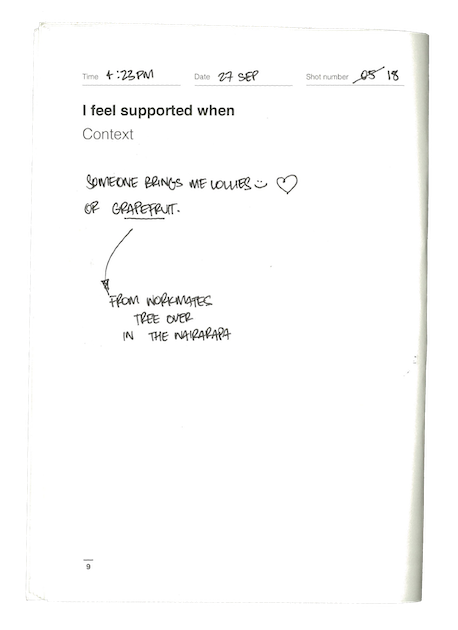 Time 4:23PM Date 27 SEP Shot number 05 18
I feel supported when
Context
SOMEONE BRINGS ME LOLLIES
OR GRAPEFRUIT.
FROM WORKMATES
TREE OVER
IN THE WAIRARAPA
9